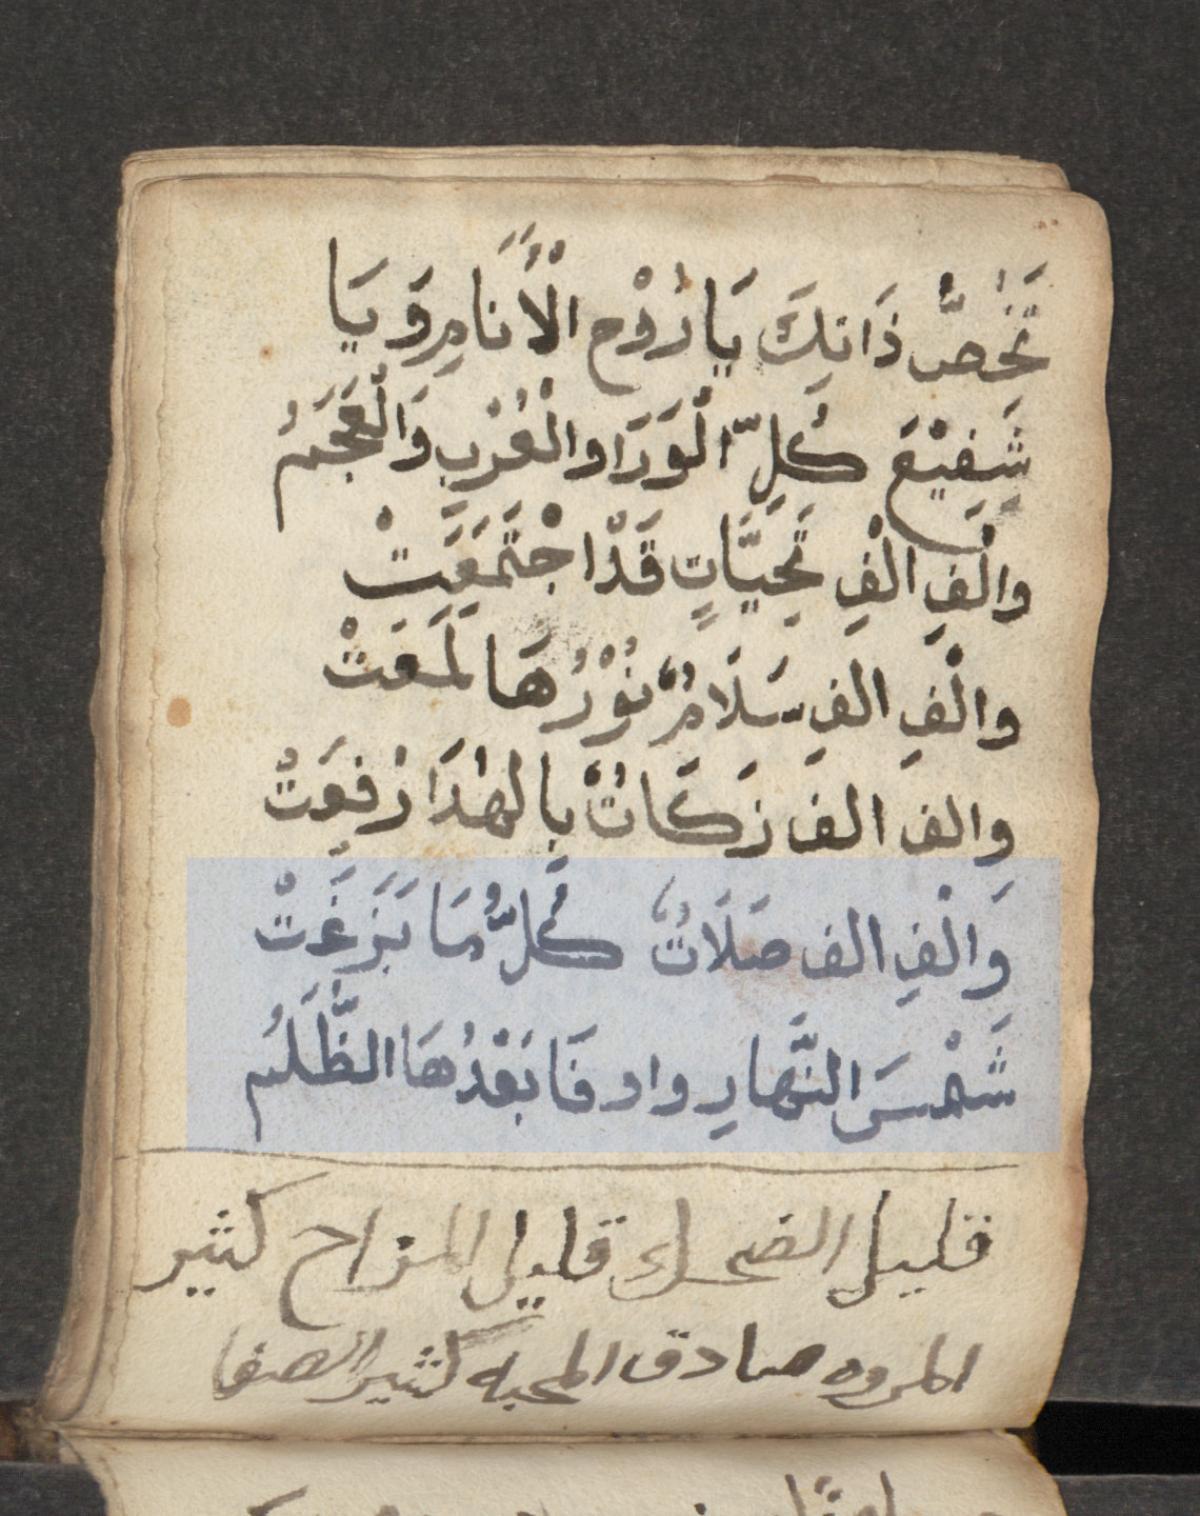 تَخُصُّ ذَاتِكَ يَا رُوْحِ الْأَنَامِ وَيَا
شَفِيْعَ كُلِّ الْوَرَا والْعُرْبِ وَالْعَجَمُ
والْفِ الْفِ تَحِيَّاتٍ قَدْ اجْتَمَعَتْ
والْفِ الفِ سَلَامٌ نُوْرُهَا لَمَعَتْ
وَالف الف زَكَاتٌ بِالهُدَا رُفِعَتْ
وَالْفِ الف صَلَاتٌ كُلُّ مَا بَزَغَتْ
شَمْسَ النَّهارِ واد فَا بَعْدُهَا الظَّلَمُ
قليل الضحك قليل المزاح كثير
المروه صادق المحبه كثير الصفا